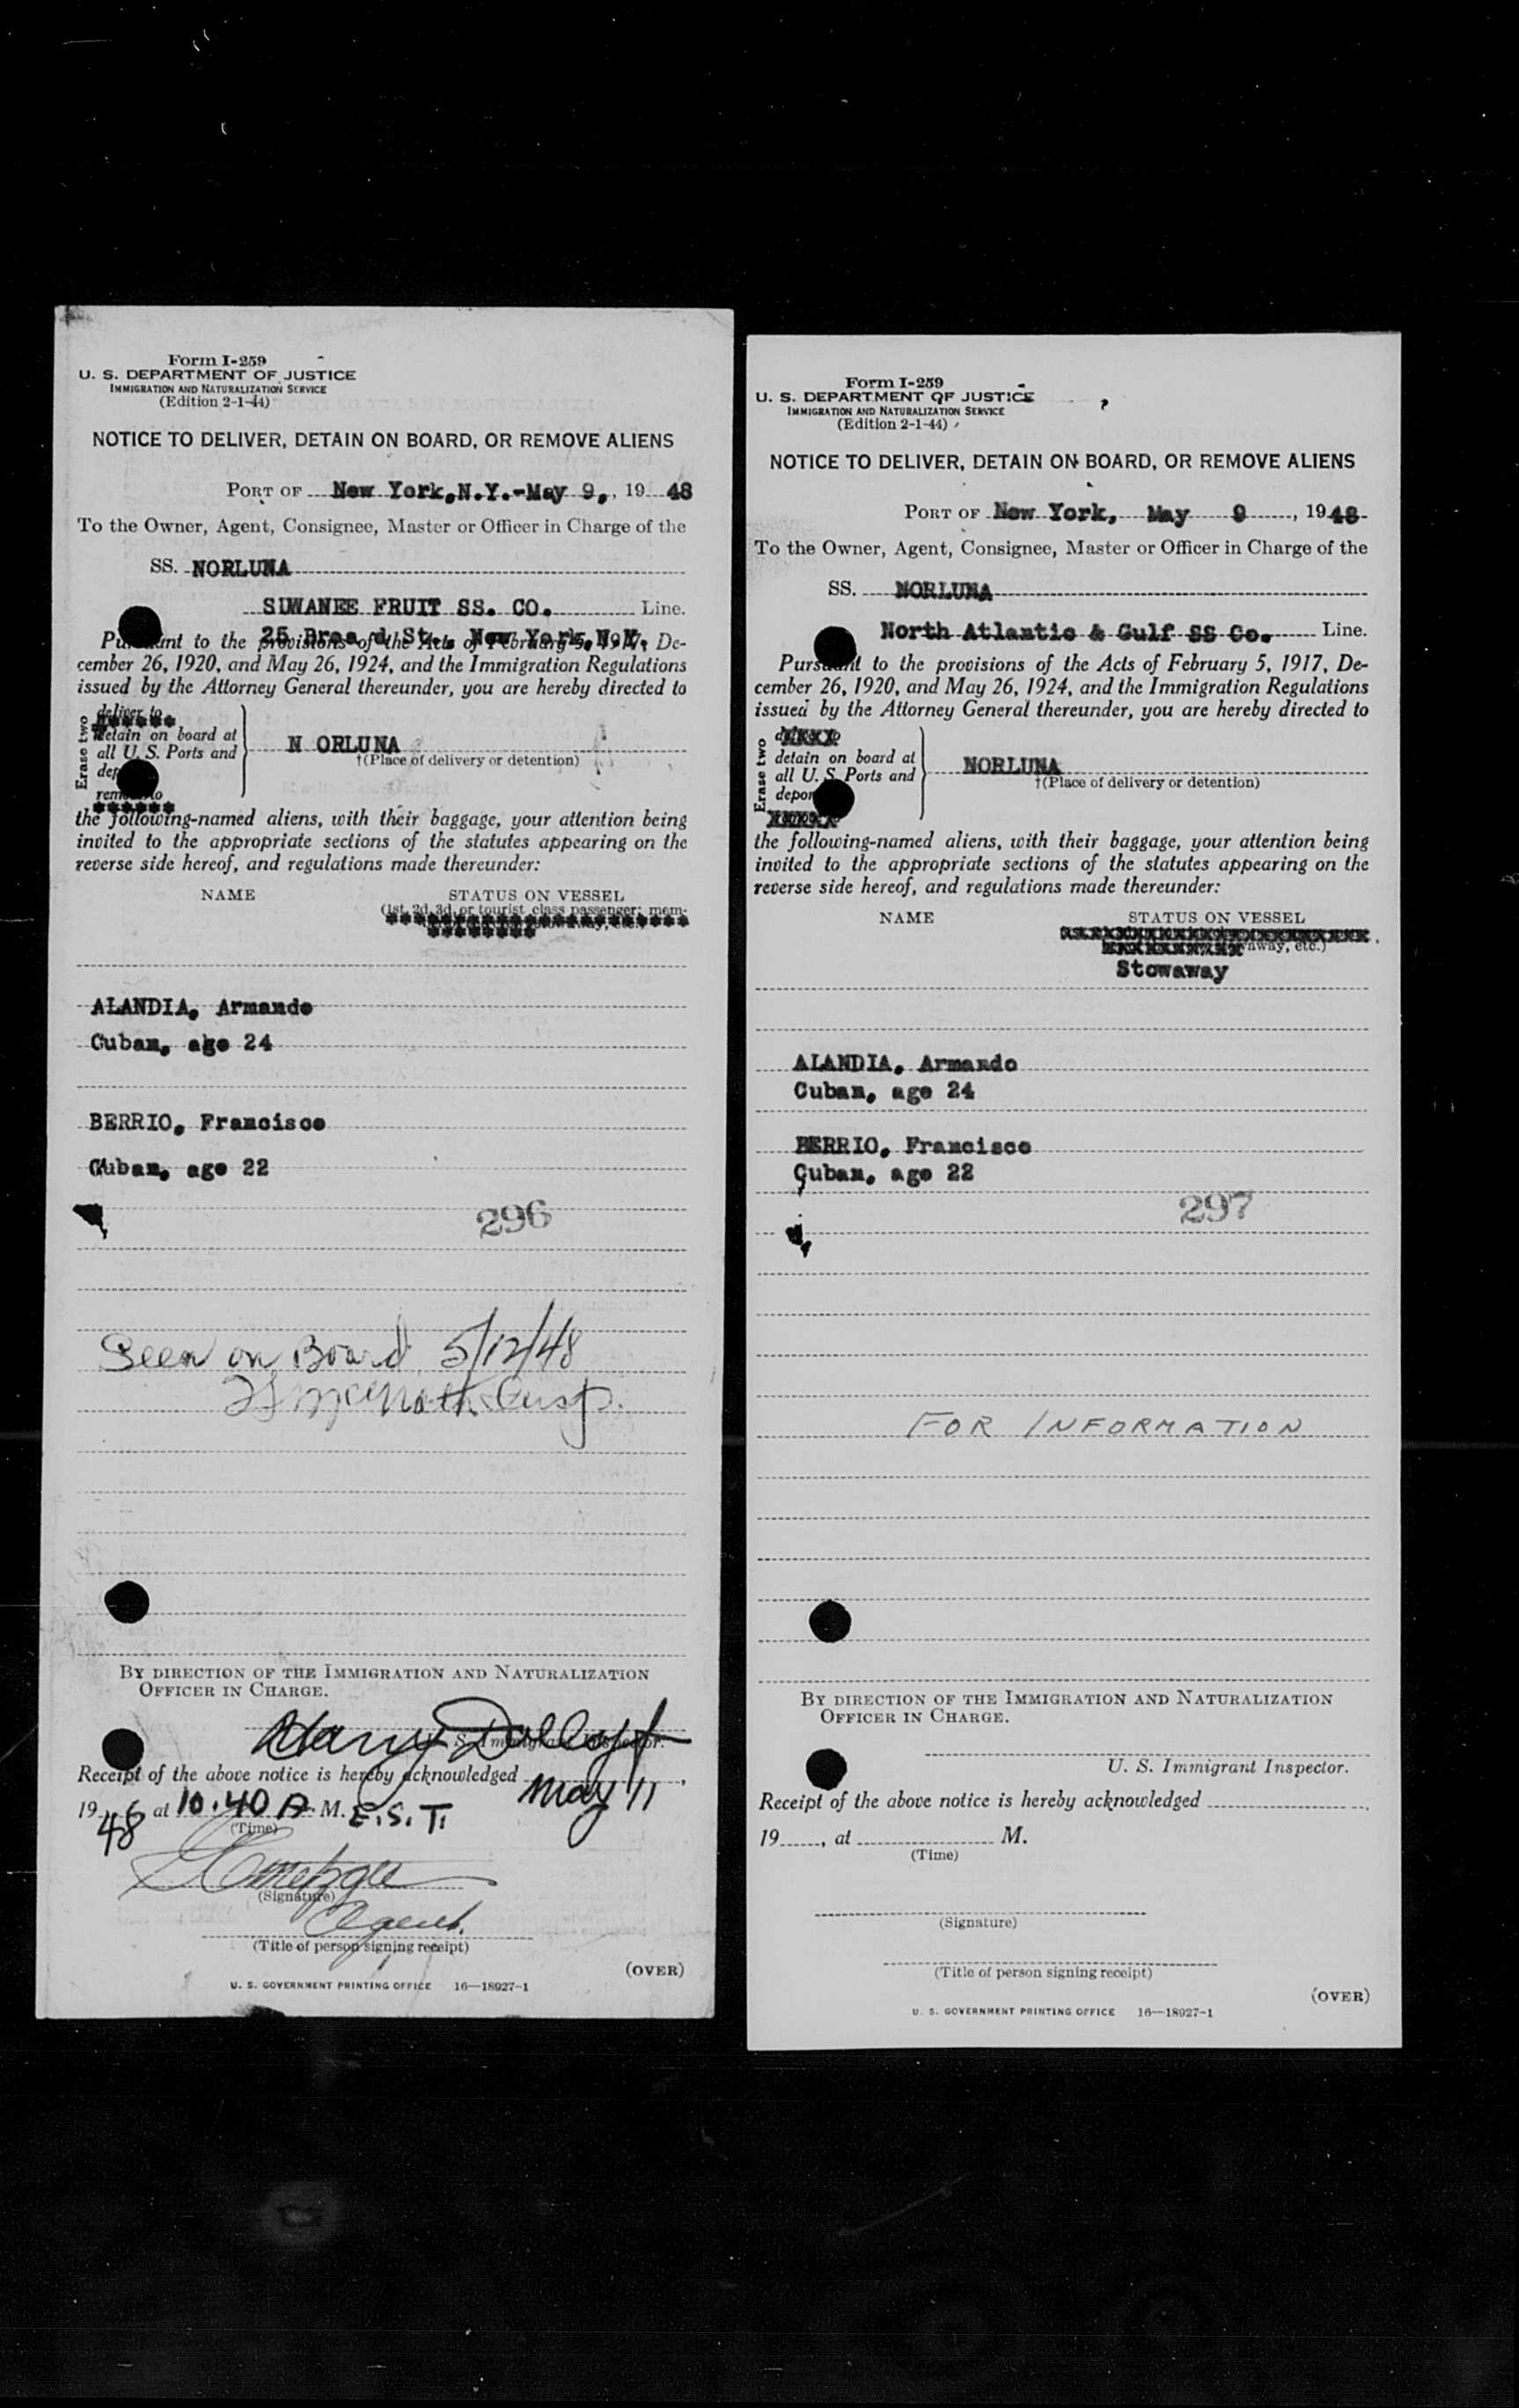 Form I-259
U. S. DEPARTMENT OF JUSTICE
IMMIGRATION AND NATURALIZATION SERVICE
(Edition 2-1-44)
NOTICE TO DELIVER, DETAIN ON BOARD, OR REMOVE ALIENS
PORT OF New York,N.Y.-May 9,, 19 48
To the Owner, Agent, Consignee, Master or Officer in Charge of the
SS. NORLUNA
SUWANEE FRUIT SS. CO. Line.
25 Broad St. New York,N.Y.
Pursuant to the provisions of the Acts of February 5, 1917, De-
cember 26, 1920, and May 26, 1924, and the Immigration Regulations
issued by the Attorney General thereunder, you are hereby directed to
Erase two
deliver to
detain on board at
all U. S. Ports and
dep
remove to
N ORLUNA
†(Place of delivery or detention)
the following-named aliens, with their baggage, your attention being
invited to the appropriate sections of the statutes appearing on the
reverse side hereof, and regulations made thereunder:
NAME STATUS ON VESSEL
(1st, 2d, 3d, or tourist class passenger; mem-
ALANDIA, Armando
Cuban, age 24
BERRIO, Francisco
Cuban, age 22
296
Seen on Board 5/12/48
Insp.
BY DIRECTION OF THE IMMIGRATION AND NATURALIZATION
OFFICER IN CHARGE.
Harry
U. S. Immigrant Inspector.
Receipt of the above notice is hereby acknowledged May 11,
1948 at 10.40 A. M. E.S.T.
(Time)
(Signature)
Agent.
(Title of person signing receipt)
(OVER)
U. S. GOVERNMENT PRINTING OFFICE 16—18927-1
Form I-259
U. S. DEPARTMENT OF JUSTICE
IMMIGRATION AND NATURALIZATION SERVICE
(Edition 2-1-44)
NOTICE TO DELIVER, DETAIN ON BOARD, OR REMOVE ALIENS
PORT OF New York, May 9, 1948
To the Owner, Agent, Consignee, Master or Officer in Charge of the
SS. NORLUNA
North Atlantic & Gulf SS Co. Line.
Pursuant to the provisions of the Acts of February 5, 1917, De-
cember 26, 1920, and May 26, 1924, and the Immigration Regulations
issued by the Attorney General thereunder, you are hereby directed to
Erase two
detain on board at
all U. S. Ports and
depor
NORLUNA
†(Place of delivery or detention)
the following-named aliens, with their baggage, your attention being
invited to the appropriate sections of the statutes appearing on the
reverse side hereof, and regulations made thereunder:
NAME STATUS ON VESSEL
away, etc.)
Stowaway
ALANDIA, Armando
Cuban, age 24
BERRIO, Francisco
Cuban, age 22
297
FOR INFORMATION
BY DIRECTION OF THE IMMIGRATION AND NATURALIZATION
OFFICER IN CHARGE.
U. S. Immigrant Inspector.
Receipt of the above notice is hereby acknowledged
19, at M.
(Time)
(Signature)
(Title of person signing receipt)
(OVER)
U. S. GOVERNMENT PRINTING OFFICE 16—18927-1